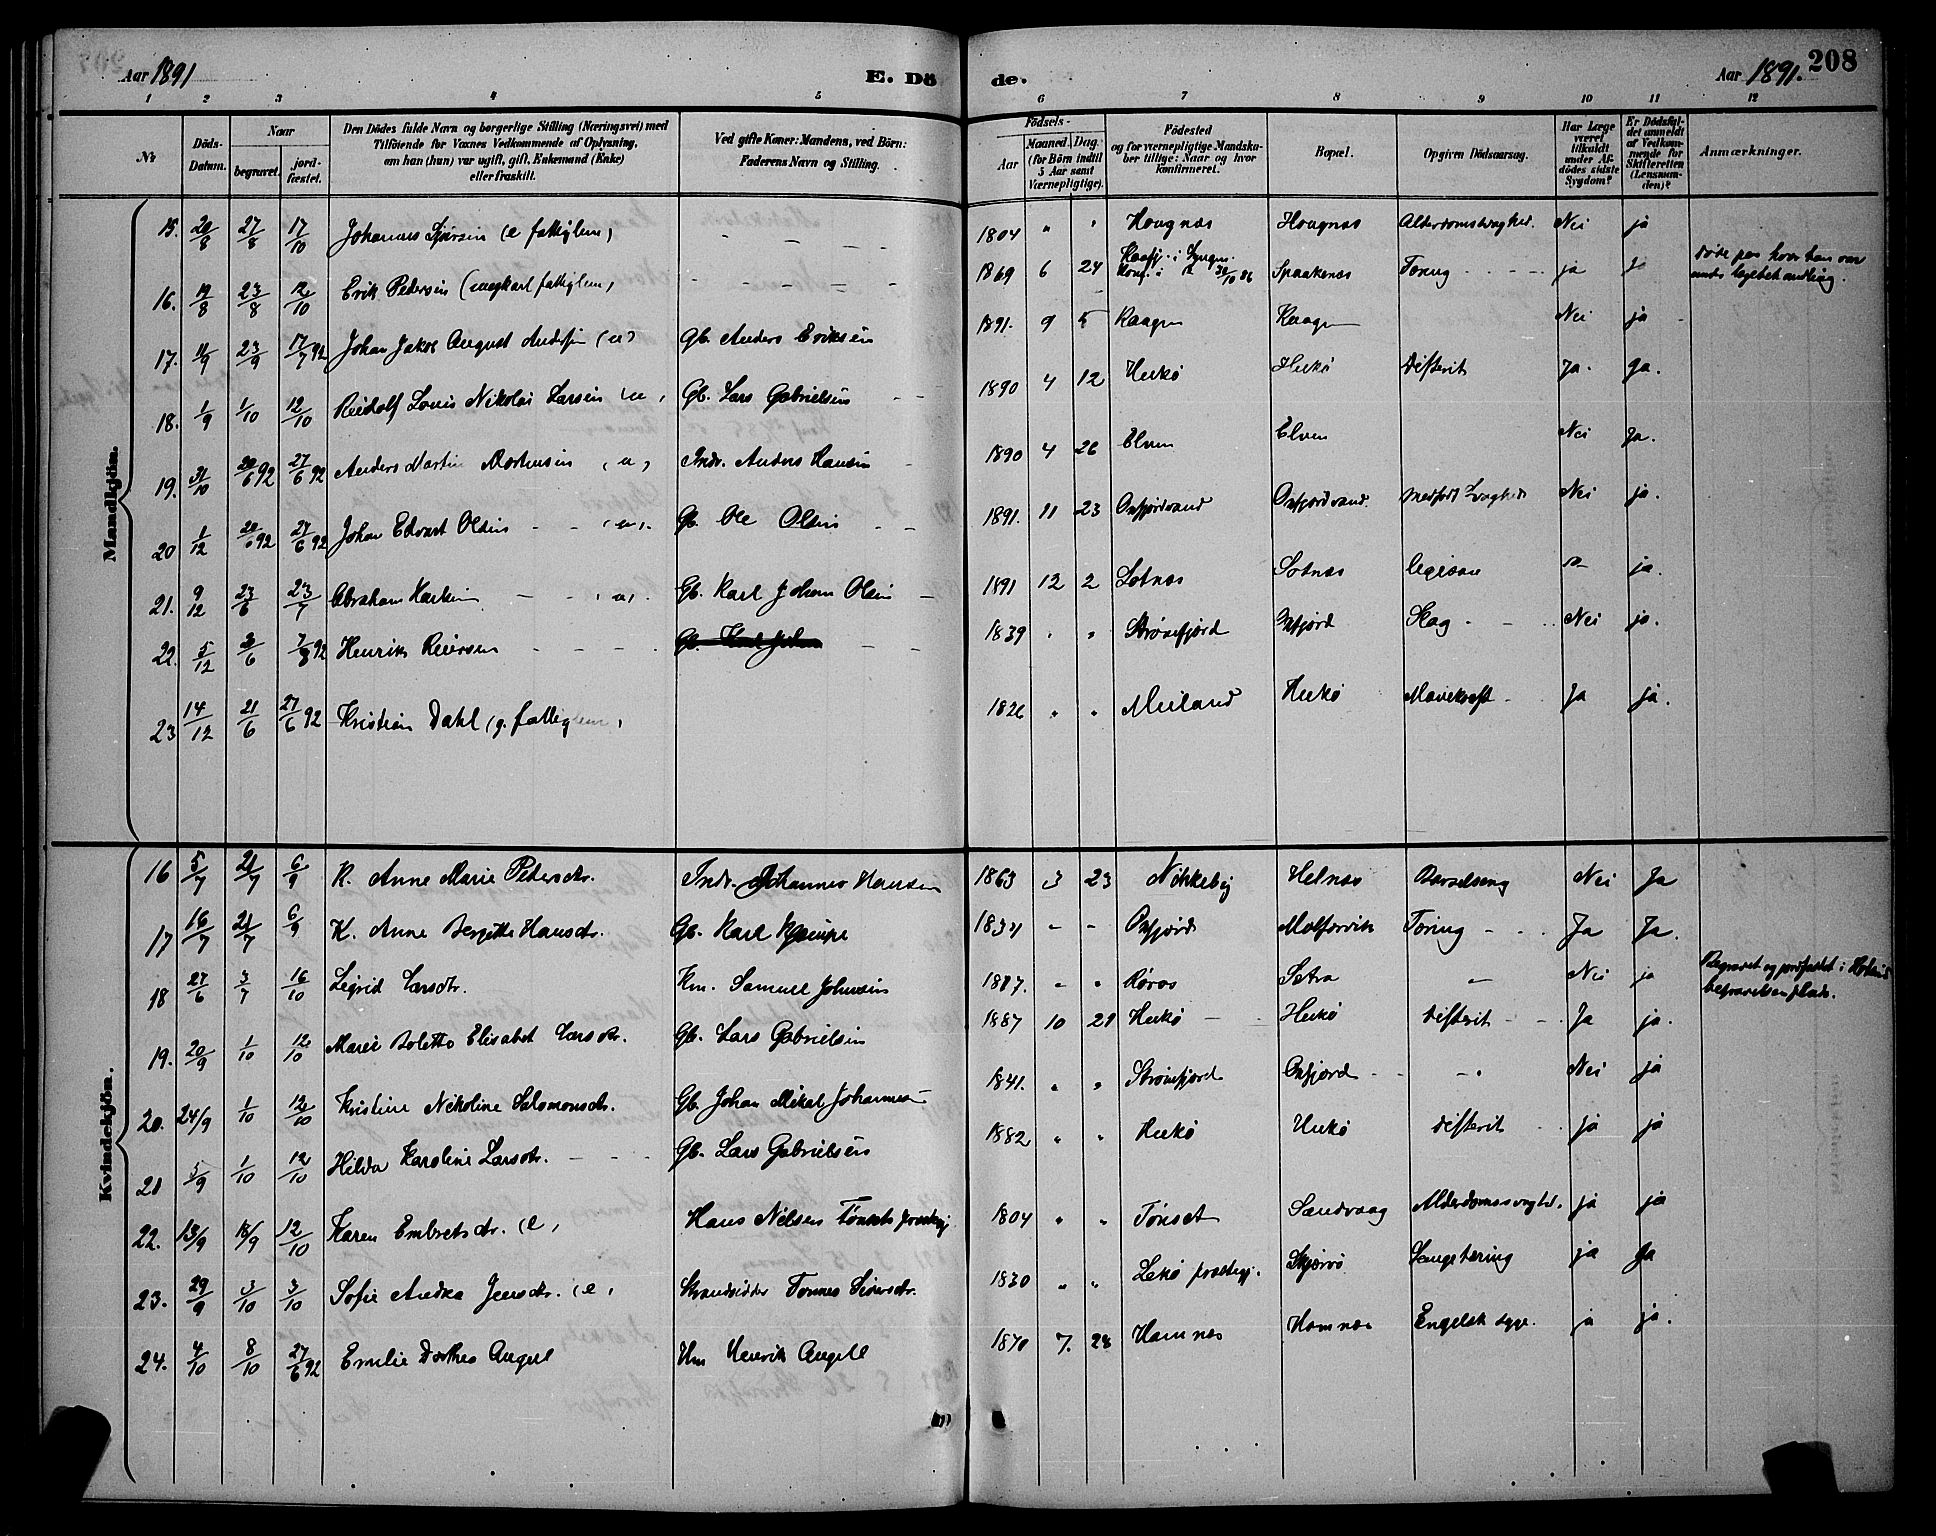 Aar 1891
E. Dö
de.
Aar 1891.
208
1 2 3 4 5 6 7 8 9 10 11 12
No
Döds-Datum.
Naar
begravet.
jordfæstet.
Den Dödes fulde Navn og borgerlige Stilling (Næringsvei) med
Tilföiende for Voxnes Vedkommende af Oplysning,
om han (hun) var ugift, gift, Enkemand (Enke)
eller fraskilt.
Ved gifte Koner: Mandens, ved Börn:
Faderens Navn og Stilling.
Födsels-
Aar
Maaned
Dag
(for Börn indtil
5 Aar samt
Værnepligtige).
Födested
og for værnepligtige Mandska-
ber tillige: Naar og hvor
konfirmeret.
Bopæl.
Opgiven Dödsaarsag.
Har Læge
været
tilkaldt
under Af-
dödes sidste
Sygdom?
Er Dödsfal-
det anmeldt
af Vedkom-
mende for
Skifteretten
(Lensman-
den)?
Anmærkninger.
Mandkjön.
15. 20/8 27/8 17/10 Johannes (e fattiglem) - - - - 1804 " " Hougnæs Hougnæs Alderdomssvaghed. Nei ja
16. 19/8 23/8 12/10 Erik Pedersen (ungkarl fattiglem) - - - - 1869 6 24 Spaakenæs Tæring - - - ja
17. 11/9 23/9 17/7 92 Johan Jakob August Andersen (u) Gb. Anders Eriksen 1891. 9 5 Kaagen Kaagen Nei ja
18. 1/9 1/10 12/10 Reidolf Louis Nikolai Larsen (u) Gb. Lars Gabrielsen - - 1890 4 12 Hukø Hukø Difterit Ja. Ja.
19. 31/10 20/6 92 27/6 92 Anders Martin Mortensen (u) Indr. Anders Hansen 1890 4 26 Elven Elven Nei Ja.
20 1/12 20/6 92 27/6 92 Johan Edvart Olsen - - (u). Gb. Ole Olsen - - 1891. 11 23 Oxfjordvand Oxfjordvand. Medfødt Svaghed Nei ja.
21. 9/12 23/6 23/7 Abraham - - (u). Gb. Karl Johan Olsen - 1891 12 2 Sotnæs Sotnæs ja.
22. 5/12 3/6 7/8 92 Henrik Reiersen - - - - Gb. Karl Johan - - 1839 " " Strømfjord Oxfjord Slag - - Nei ja.
23 14/12 21/6 27/6 92 Kristian Dahl (g. fattiglem) 1826 " " Meiland Hukø Mavekræft - Ja ja.
Kvindekjön.
16 5/7 21/7 6/9 K. Anne Marie Pedersdtr. Indr. Johannes Hansen 1863 3 23 Nikkeby Helnæs Barselseng Nei Ja
17 16/7 21/7 6/9 K. Anne Bergitte Hansdtr. Gb. Karl 1834 - - Oxfjord Tæring - - Ja Ja.
18 27/6 3/7 16/10 Sigrid Larsdtr. Km. Samuel Johnsen 1887. " " Røros Sætra " Nei ja Begravet og jordfæstet i
19. 20/9 1/10 12/10 Marie Bolette Elisabet Larsdtr. Gb. Lars Gabrielsen 1887 10 21 Hukø - - Hukø Difterit - - Ja ja.
20. 24/9 1/10 12/10 Kristine Nikoline Salomonsdtr. Gb. Johan Mikal Johannesen 1841. " " Strømfjord Oxfjord - - " Nei ja
21 5/9 1/10 12/10 Hilda Karoline Larsdtr. - - - Gb. Lars Gabrielsen 1882 " " Hukø Hukø Difterit ja ja
22. 13/9 16/9 12/10 Karen Embretsdtr. (e) Hans Nilsen Tønsets præstegj. 1804 " " Tønset Sandvaag Alderdomssvaghed. ja ja
23. 29/9 3/10 3/10 Sofie Andrea Jensdtr. (e) Strandsidder Tønnes 1830 " " Lekø præstegj. Skjervø Lungetæring ja Ja
24. 4/10 8/10 27/6 92 Emilie Dorthea Angell Hm Henrik Angell 1870 7. 28 Hamnæs Hamnæs Engelsk syge. ja ja.